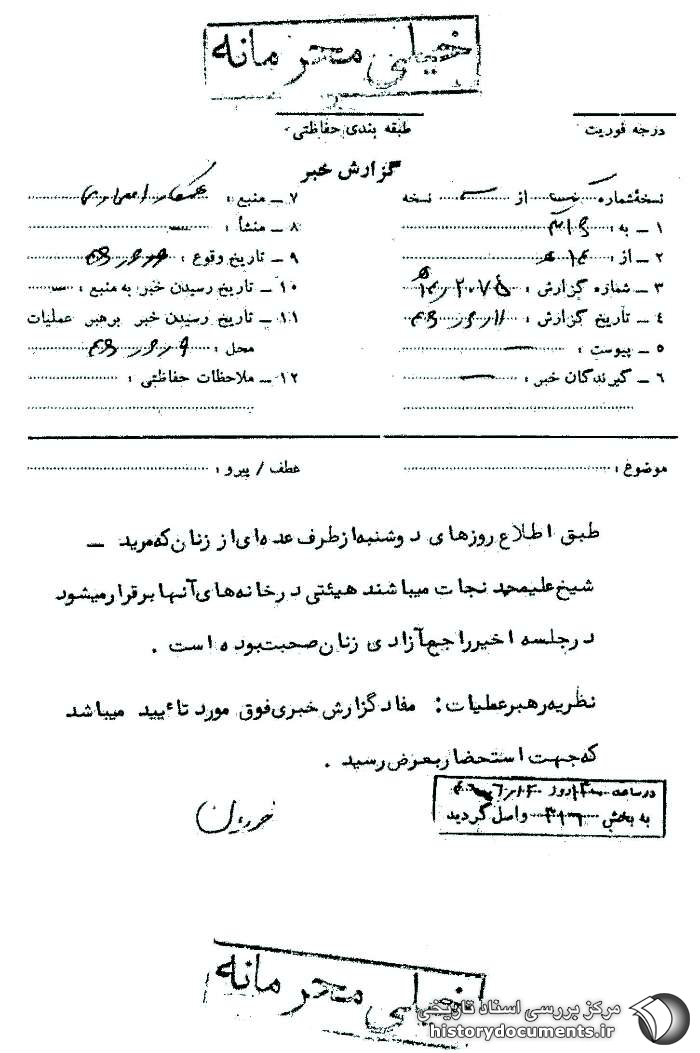 خیلی محرمانه
درجه فوریت
طبقه بندی حفاظتی
گزارش خبر
نسخهٔ شماره از نسخه
۱ ـ به :
۲ ـ از :
۳ ـ شماره گزارش :
۴ ـ تاریخ گزارش :
۵ ـ پیوست : ـ
۶ ـ گیرندگان خبر : ـ
۷ ـ منبع :
۸ ـ منشأ : ـ
۹ ـ تاریخ وقوع :
۱۰ ـ تاریخ رسیدن خبر به منبع : ـ
۱۱ ـ تاریخ رسیدن خبر برهبر عملیات
محل :
۱۲ ـ ملاحظات حفاظتی :
موضوع :
عطف / پیرو :
طبق اطلاع روزهای دوشنبه از طرف عده‌ای از زنان که مرید ـ
شیخ علیمحمد نجات میباشند هیئتی در خانه‌های آنها برقرار میشود
در جلسه اخیر راجع آزادی زنان صحبت بوده است .
نظریه رهبر عملیات : مفاد گزارش خبری فوق مورد تائید میباشد
که جهت استحضار بعرض رسید .
در ساعه روز
به بخش ۳۱۶ واصل گردید
خیلی محرمانه
مرکز بررسی اسناد تاریخی
historydocuments.ir